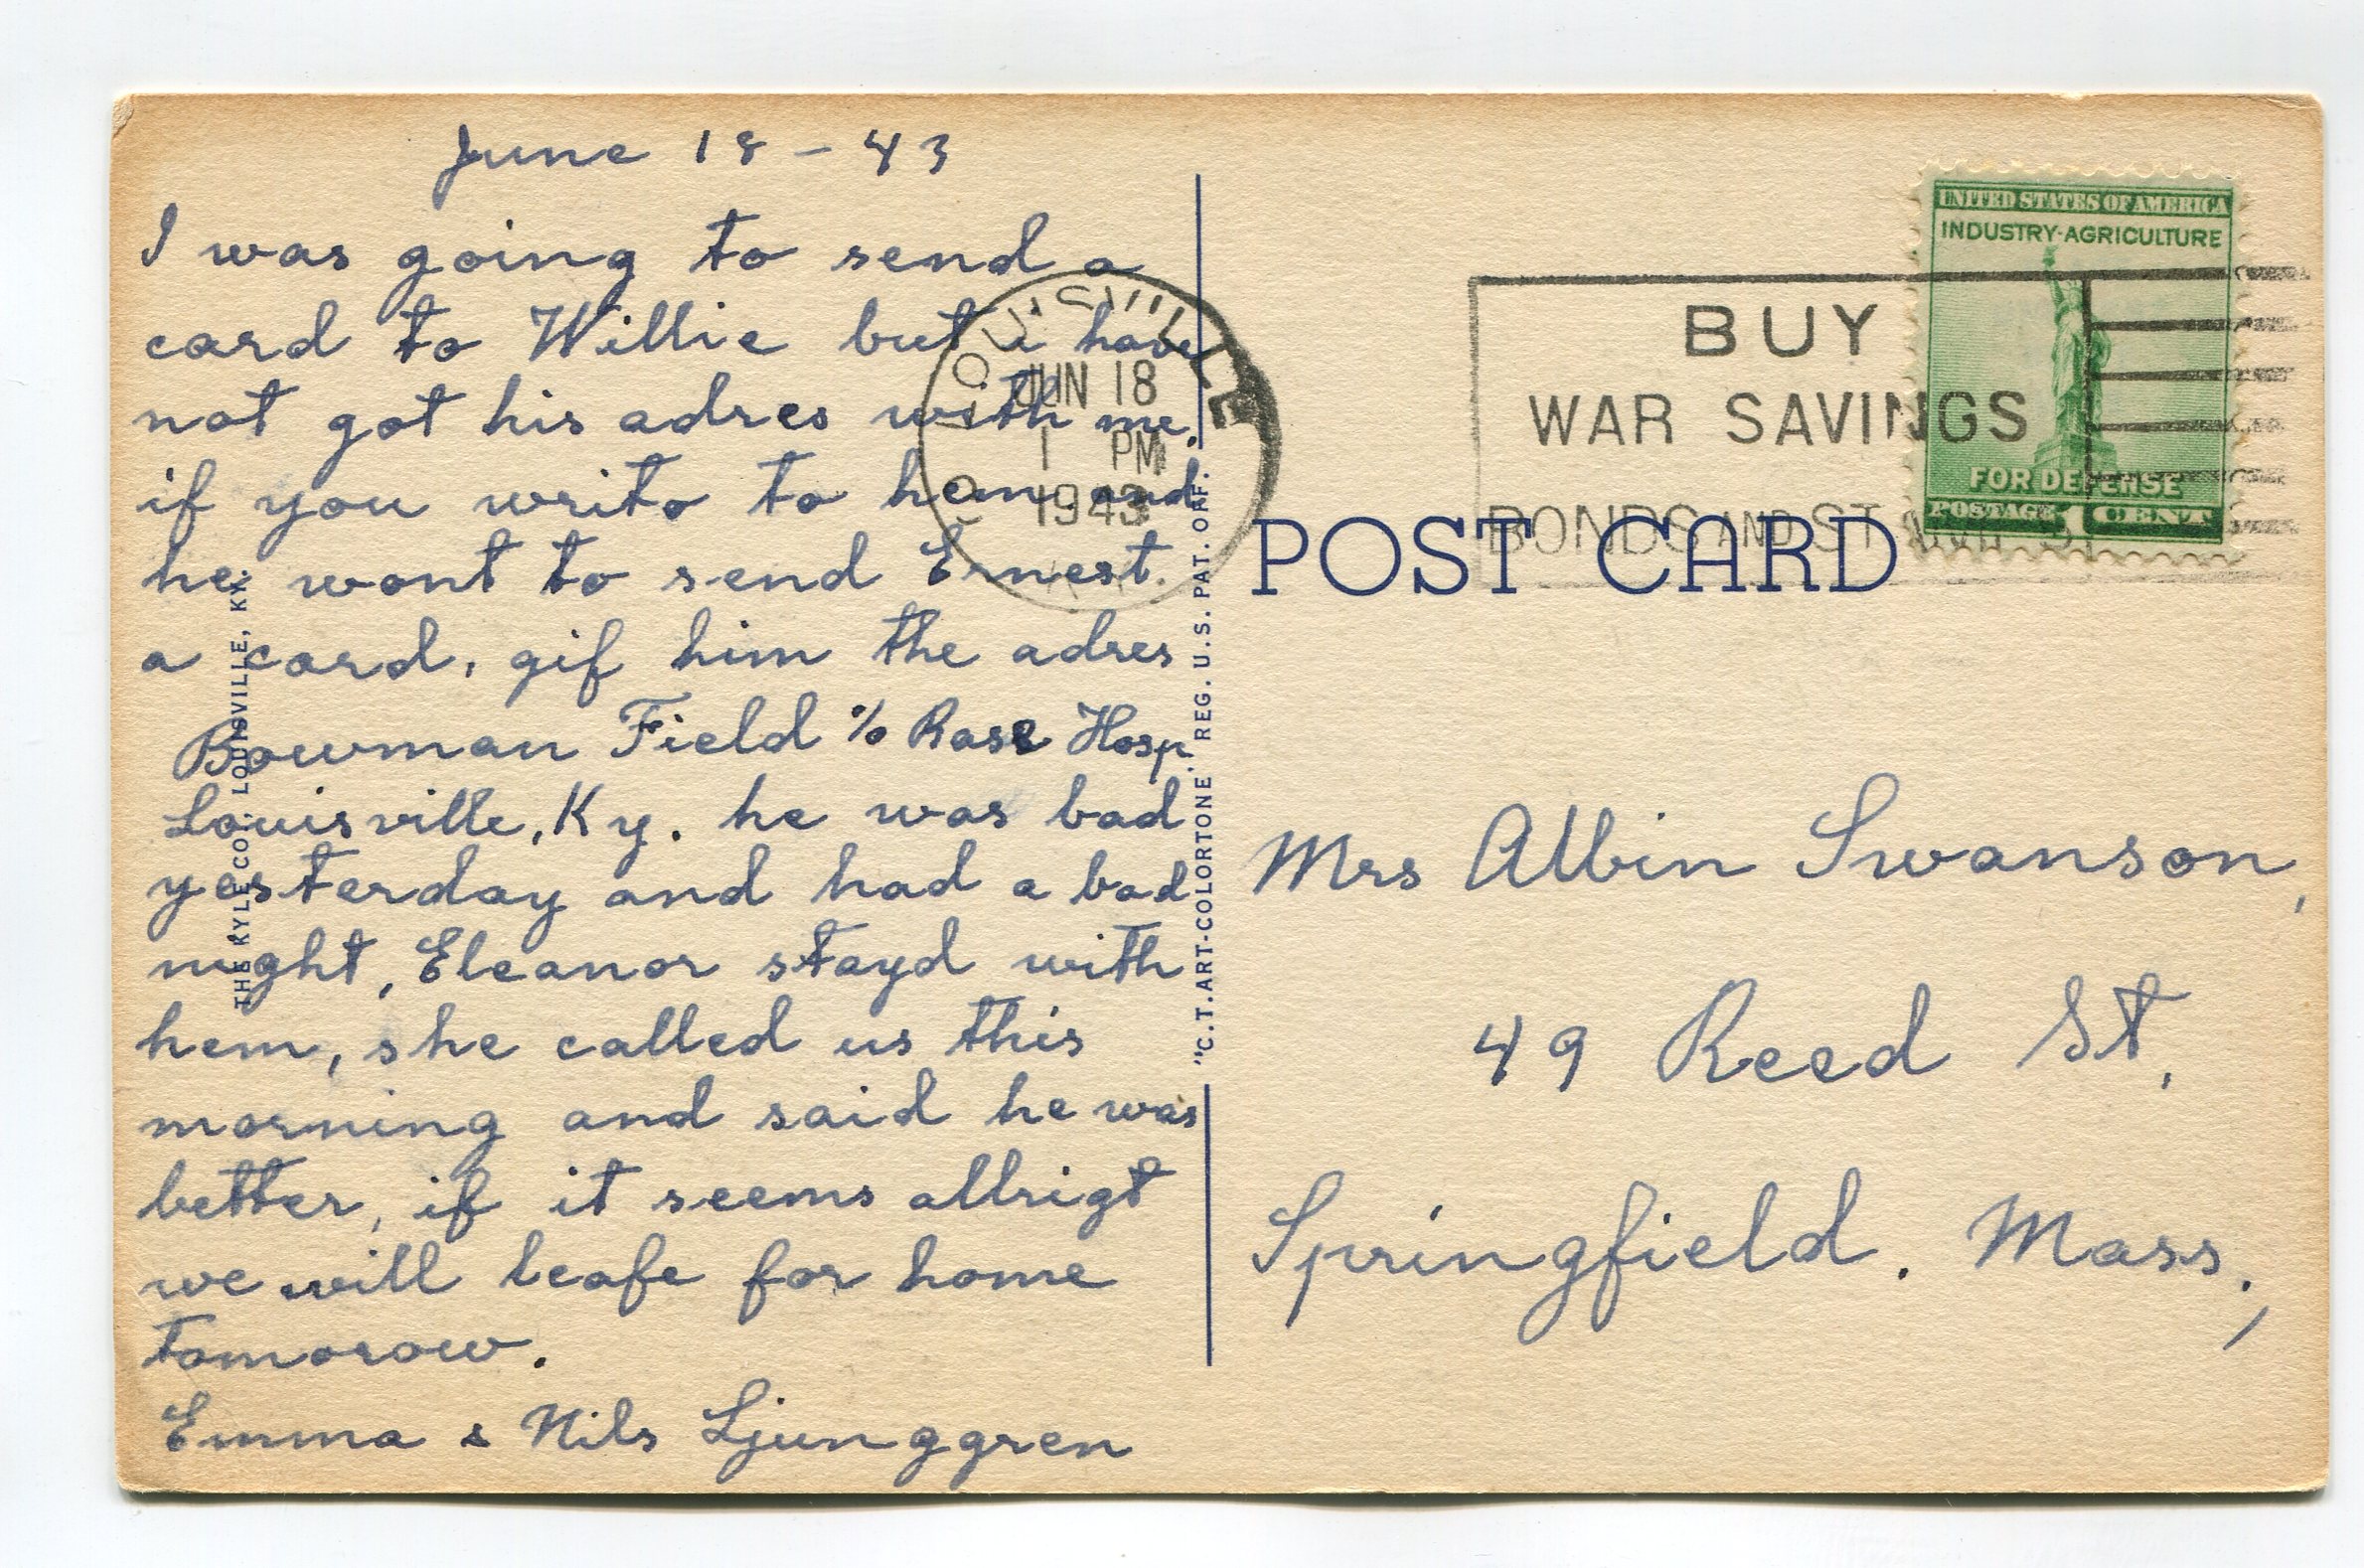 June 18 - 43
I was going to send a
card to Willie but i have
not got his adres with me.
if you writo to hem and
he wont to send Ernest
a card, gif him the adres
Bowman Field % Base Hosp
Louisville, Ky. he was bad
yesterday and had a bad
night, Eleanor stayd with
hem, she called us this
morning and said he was
better, if it seems allrigt
we will leafe for home
tomorow.
Emma & Nils Ljunggren
THE KYLE CO., LOUISVILLE, KY.
"C.T. ART-COLORTONE" REG. U.S. PAT. OFF.
LOUISVILLE
JUN 18
1 PM
1943
BUY
WAR SAVINGS
BONDS AND ST
UNITED STATES OF AMERICA
INDUSTRY·AGRICULTURE
FOR DEFENSE
POSTAGE 1 CENT
POST CARD
Mrs Albin Swanson,
49 Reed St,
Springfield. Mass.,